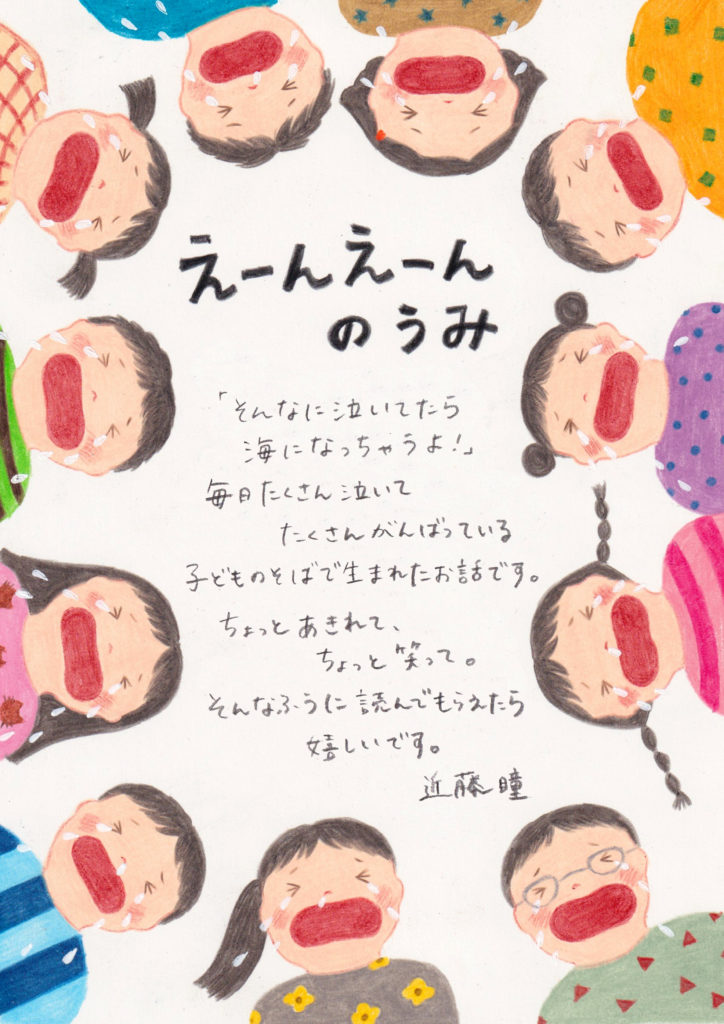 えーんえーん
のうみ
「そんなに泣いてたら
海になっちゃうよ!」
毎日たくさん泣いて
たくさんがんばっている
子どものそばで生まれたお話です。
ちょっとあきれて、
ちょっと笑って。
そんなふうに読んでもらえたら
嬉しいです。
近藤瞳